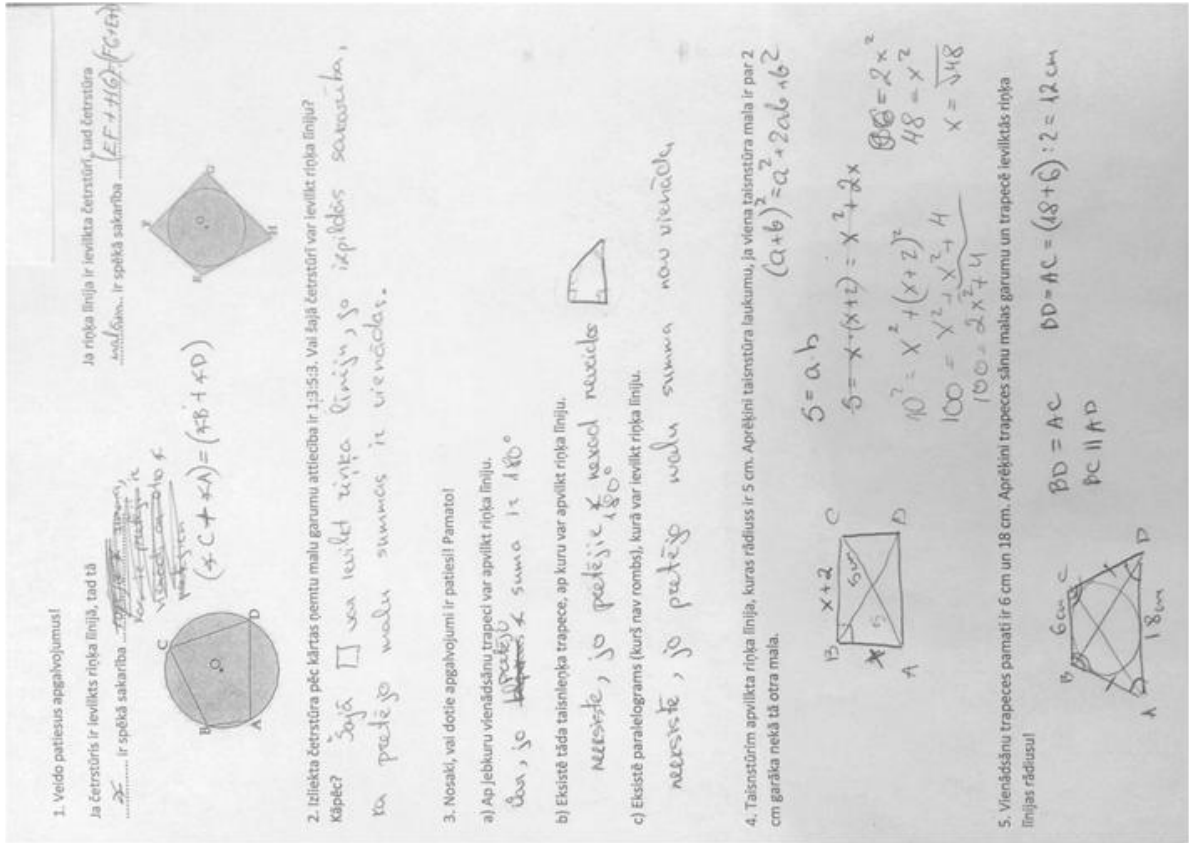 1. Veido patiesus apgalvojumus!
Ja četrstūris ir ievilkts riņķa līnijā, tad tā
ir spēkā sakarība
(∢C + ∢A) = (∢B + ∢D)
B
C
O
A
D
Ja riņķa līnija ir ievilkta četrstūrī, tad četrstūra
malām ir spēkā sakarība (EF + HG) = (FG+EH)
F
O
G
E
H
2. Izliekta četrstūra pēc kārtas ņemtu malu garumu attiecība ir 1:3:5:3. Vai šajā četrstūrī var ievilkt riņķa līniju?
Kāpēc?
Šajā □ var ievilkt riņķa līniju, jo izpildās sakarība,
ka pretējo malu summas ir vienādas.
3. Nosaki, vai dotie apgalvojumi ir patiesi! Pamato!
a) Ap jebkuru vienādsānu trapeci var apvilkt riņķa līniju.
pretējo
Var, jo ∢ suma ir 180°
b) Eksistē tāda taisnleņķa trapece, ap kuru var apvilkt riņķa līniju.
neeksistē, jo pretējie ∢ nekad neveidos
180°
c) Eksistē paralelograms (kurš nav rombs), kurā var ievilkt riņķa līniju.
neeksistē, jo pretējo malu summa nav vienāda,
4. Taisnstūrim apvilkta riņķa līnija, kuras rādiuss ir 5 cm. Aprēķini taisnstūra laukumu, ja viena taisnstūra mala ir par 2
cm garāka nekā tā otra mala.
(a+b)² = a² + 2ab + b²
B
x+2
C
x
5cm
5
A
D
S = a · b
S = x · (x+2) = x² + 2x
10² = x² + (x+2)²
100 = x² + x² + 4
100 = 2x² + 4
96 = 2x²
48 = x²
x = √48
5. Vienādsānu trapeces pamati ir 6 cm un 18 cm. Aprēķini trapeces sānu malas garumu un trapecē ievilktās riņķa
līnijas rādiusu!
B
6cm
C
A
18cm
D
BD = AC
BC || AD
BD = AC = (18+6) : 2 = 12 cm